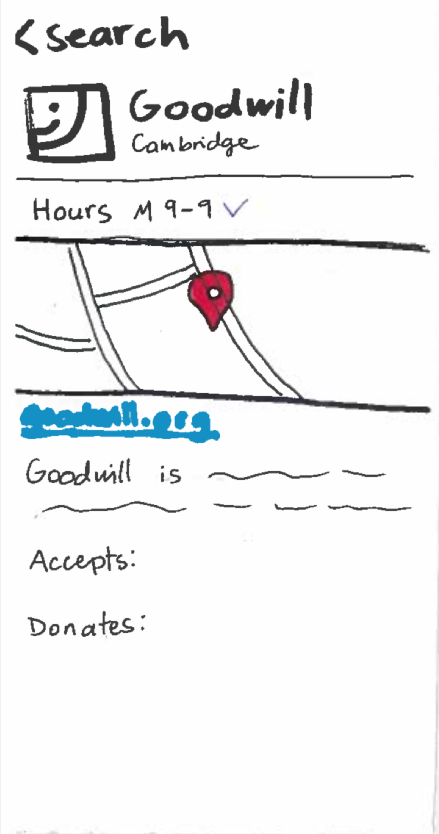 <search
Goodwill
Cambridge
Hours M 9-9
goodwill.org
Goodwill is
Accepts:
Donates: